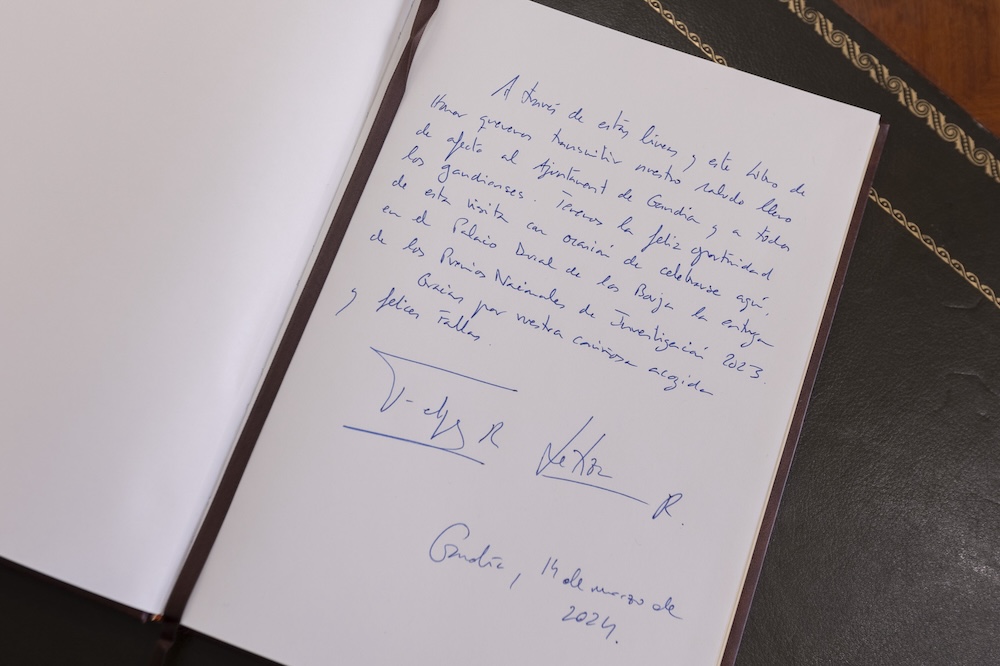 A través de estas líneas y este Libro de
Honor queremos transmitir nuestro saludo lleno
de afecto al Ajuntament de Gandia y a todos
los gandienses. Tenemos la feliz oportunidad
de esta visita con ocasión de celebrarse aquí,
en el Palacio Ducal de los Borja la entrega
de los Premios Nacionales de Investigación 2023.
Gracias por vuestra cariñosa acogida
y felices Fallas.
Felipe R Letizia R.
Gandía, 14 de marzo de
2024.